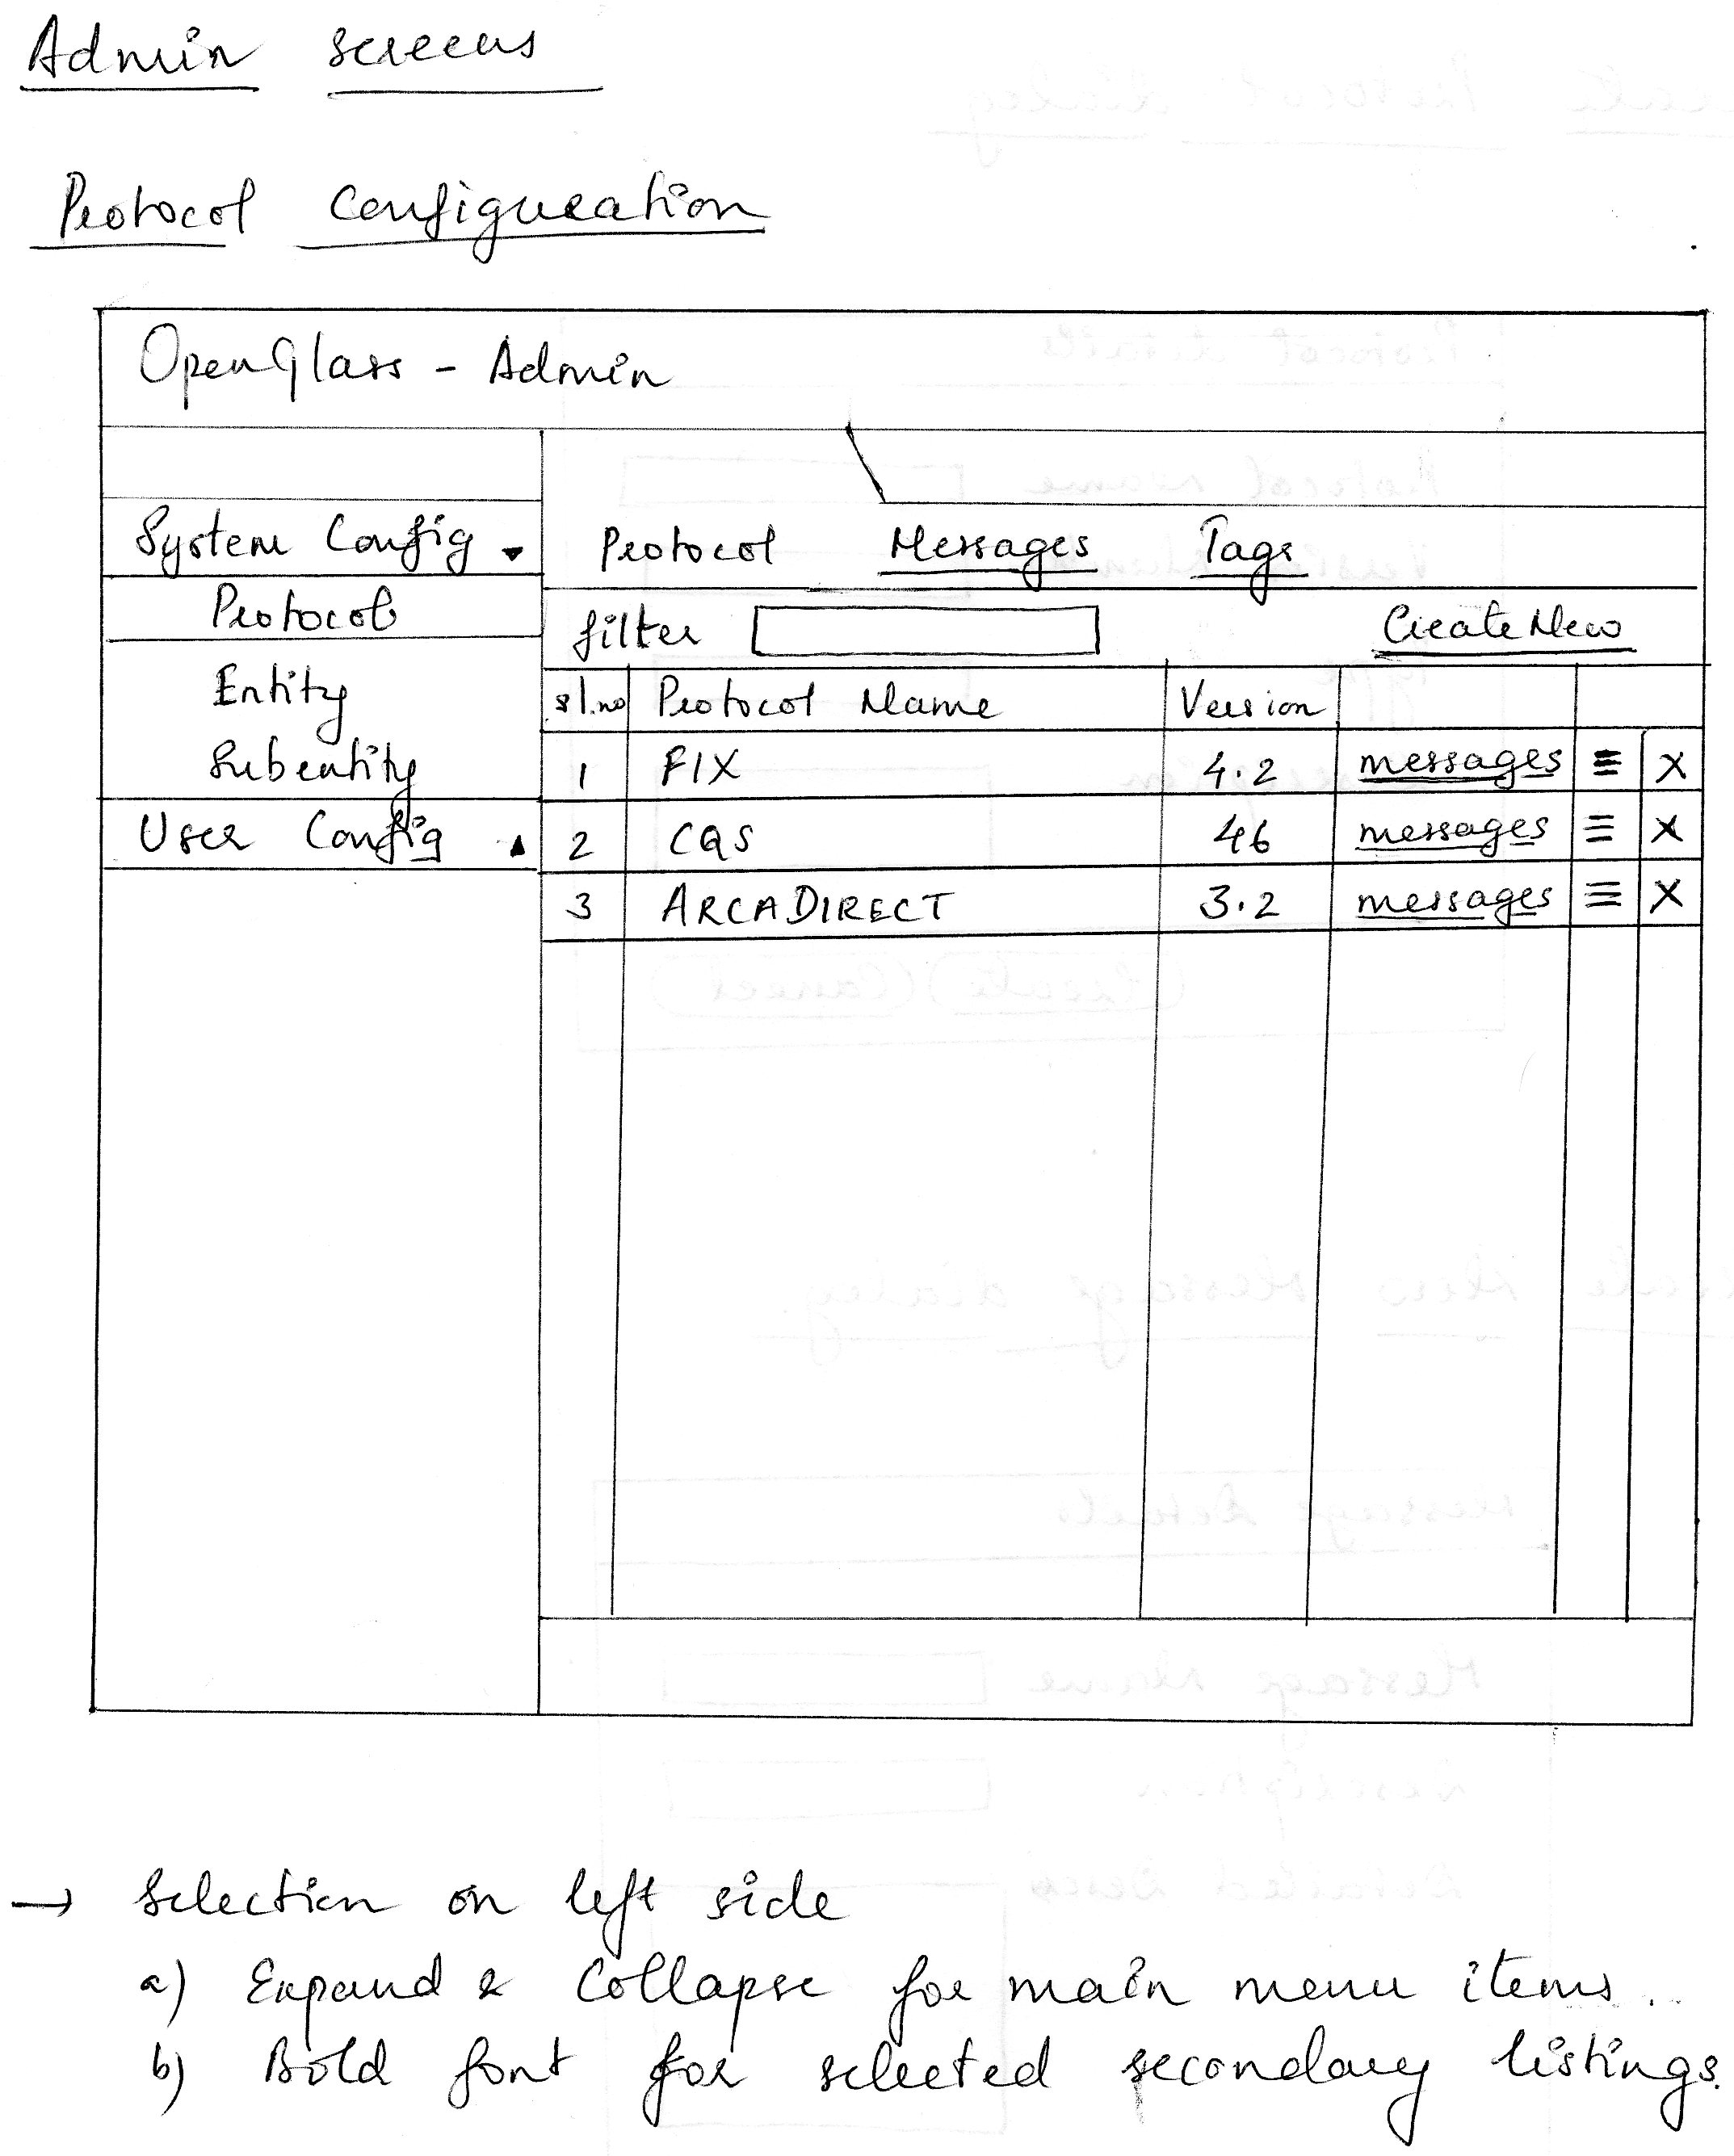 Admin screens
Protocol Configuration
OpenGlass - Admin
System Config ▾
Protocol Messages Tags
Protocol
filter
Create New
Entity
sl.no Protocol Name Version
Subentity
1 FIX 4.2 messages ≡ X
User Config ▴
2 CQS 46 messages ≡ X
3 ARCADIRECT 3.2 messages ≡ X
→ Selection on left side
a) Expand & Collapse for main menu items.
b) Bold font for selected secondary listings.